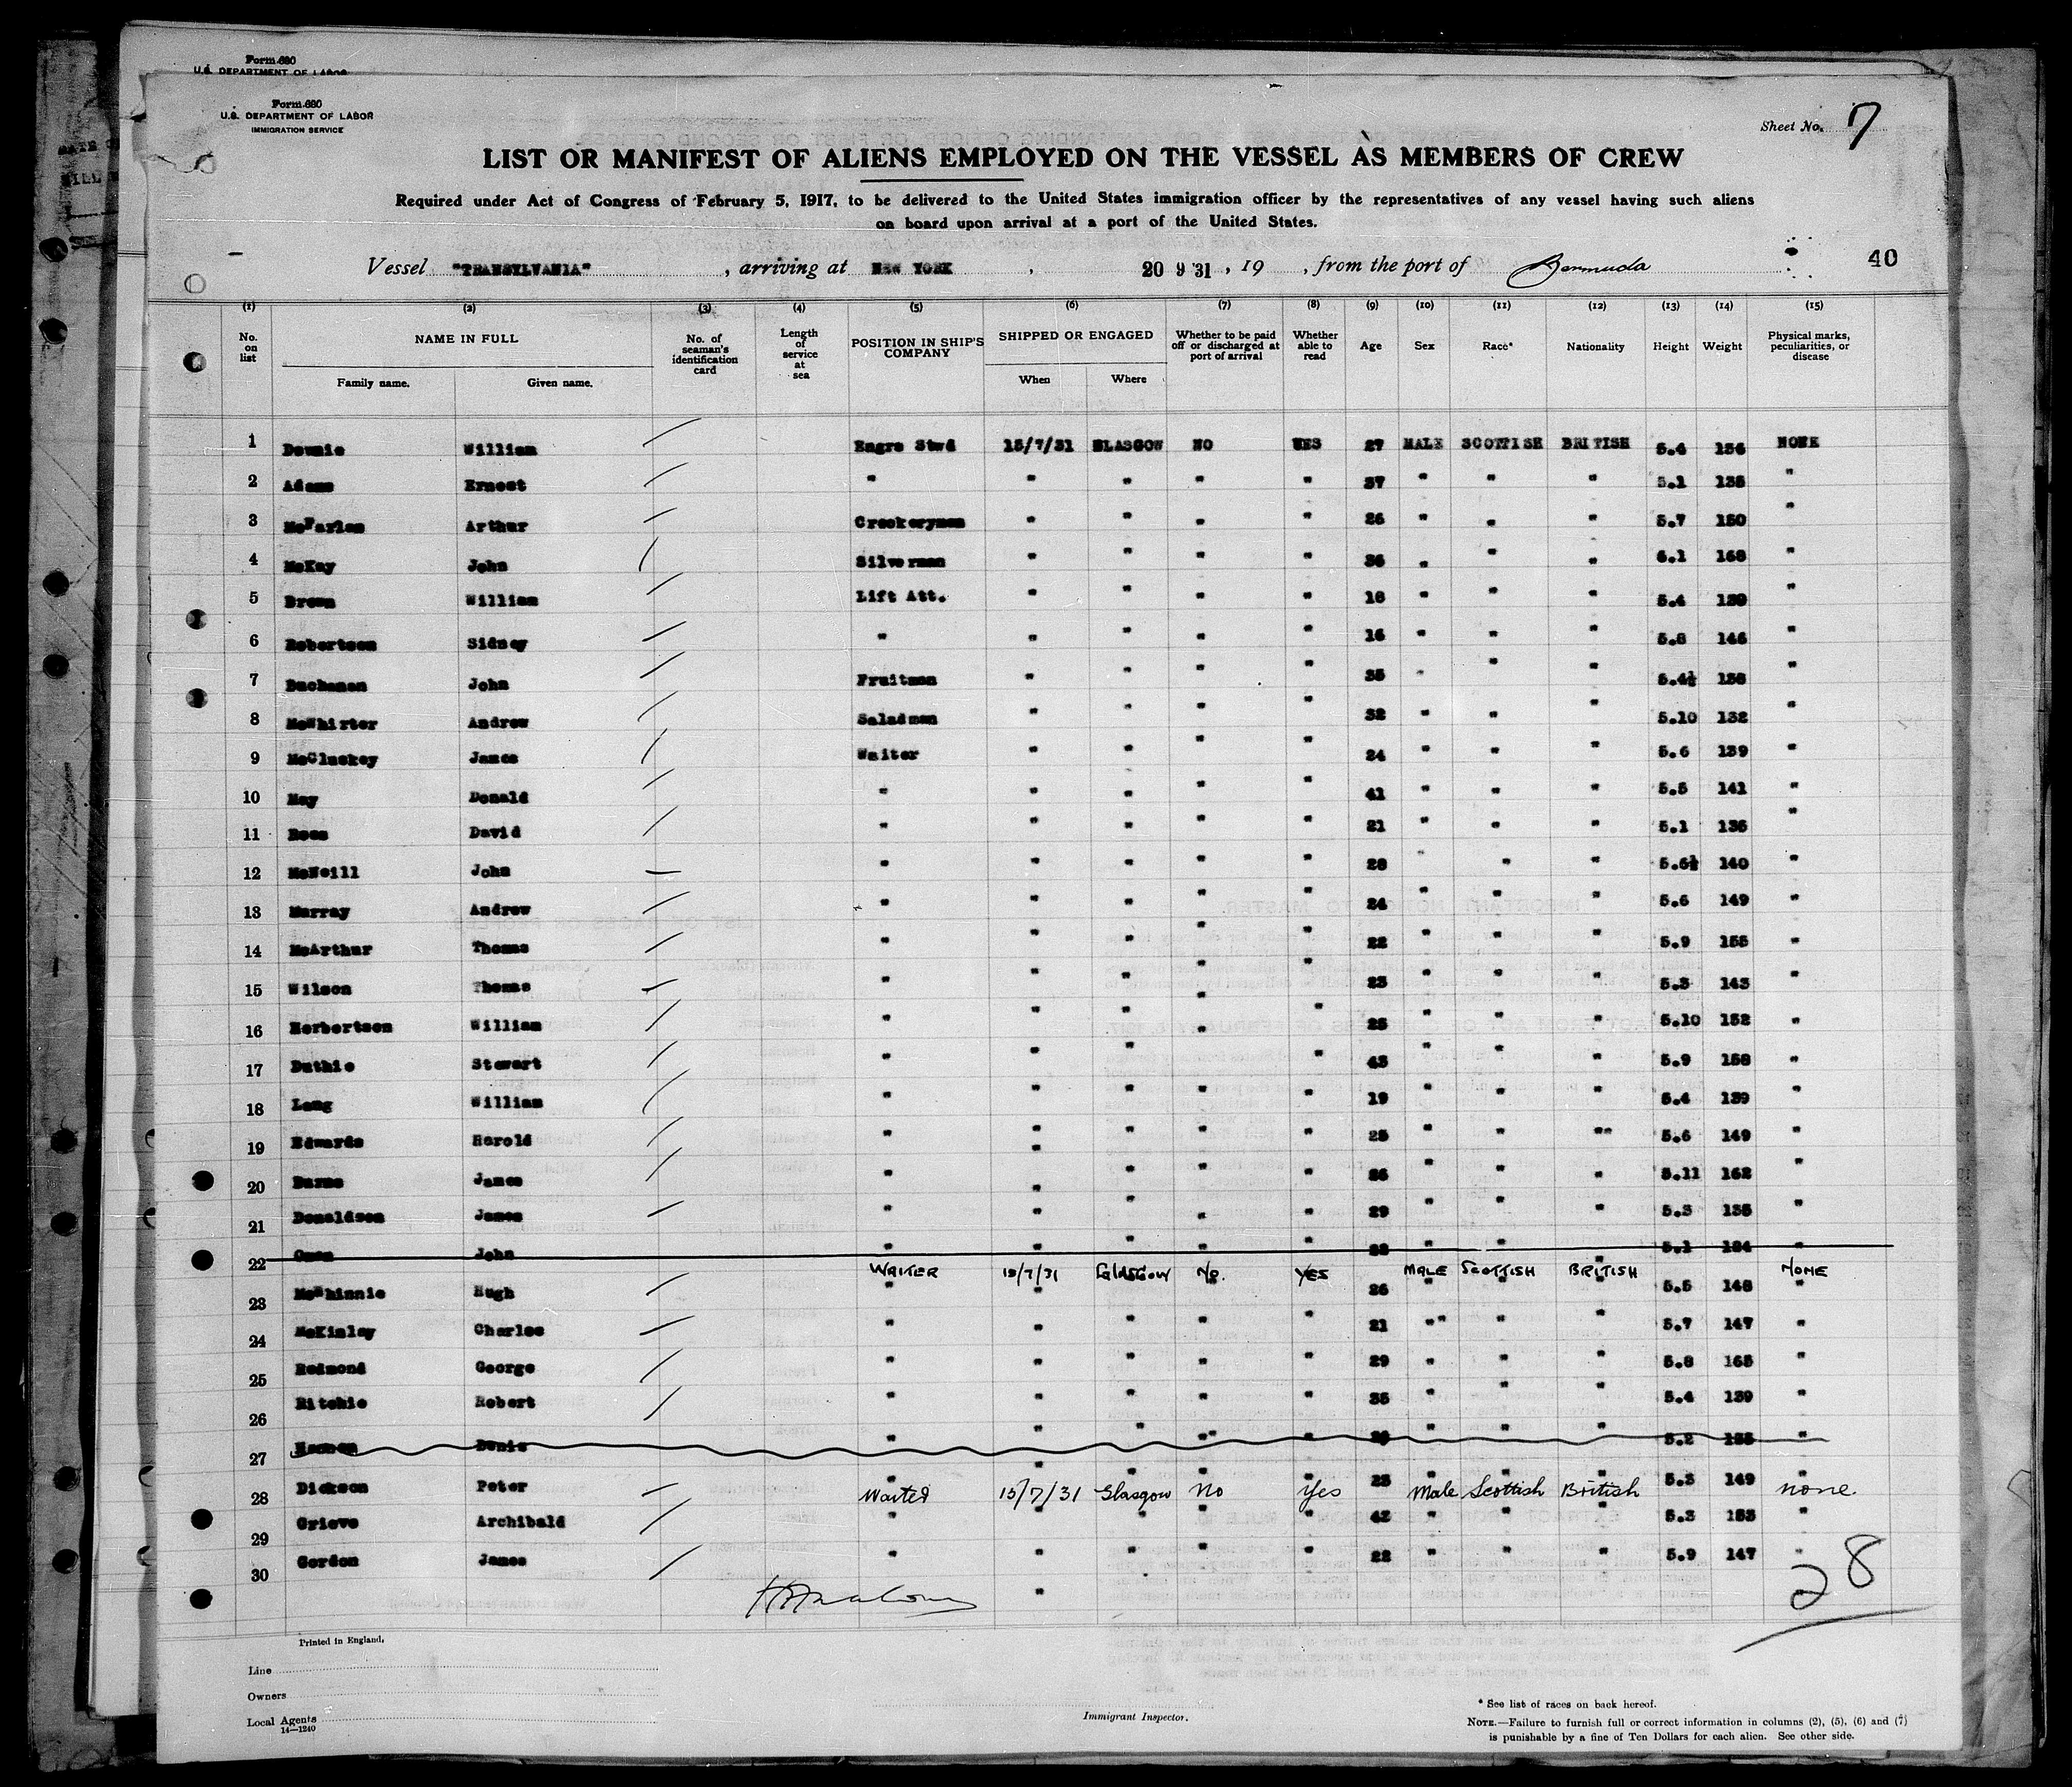 Form 680
U.S. DEPARTMENT OF LABOR
Form 680
U.S. DEPARTMENT OF LABOR
IMMIGRATION SERVICE
Sheet No. 7
LIST OR MANIFEST OF ALIENS EMPLOYED ON THE VESSEL AS MEMBERS OF CREW
Required under Act of Congress of February 5, 1917, to be delivered to the United States immigration officer by the representatives of any vessel having such aliens
on board upon arrival at a port of the United States.
Vessel "TRANSYLVANIA", arriving at NEW YORK, 20 9 31, 19 , from the port of Bermuda 40
(1) (2) (3) (4) (5) (6) (7) (8) (9) (10) (11) (12) (13) (14) (15)
No. on list NAME IN FULL Family name. Given name. No. of seaman's identification card Length of service at sea POSITION IN SHIP'S COMPANY SHIPPED OR ENGAGED When Where Whether to be paid off or discharged at port of arrival Whether able to read Age Sex Race* Nationality Height Weight Physical marks, peculiarities, or disease
1 Downie William Engrs Stwd 15/7/31 GLASGOW NO YES 27 MALE SCOTTISH BRITISH 5.4 136 NONE
2 Adams Ernest " " " " " 37 " " " 5.1 135 "
3 McFarlan Arthur Crockeryman " " " " 26 " " " 5.7 150 "
4 McKay John Silverman " " " " 36 " " " 6.1 168 "
5 Brown William Lift Att. " " " " 18 " " " 5.4 139 "
6 Robertson Sidney " " " " " 16 " " " 5.8 146 "
7 Buchanan John Fruitman " " " " 35 " " " 5.4½ 138 "
8 McWhirter Andrew Saladman " " " " 32 " " " 5.10 132 "
9 McCluskey James Waiter " " " " 24 " " " 5.6 139 "
10 May Donald " " " " " 41 " " " 5.5 141 "
11 Ross David " " " " " 21 " " " 5.1 136 "
12 McNeill John " " " " " 28 " " " 5.6½ 140 "
13 Murray Andrew " " " " " 24 " " " 5.6 149 "
14 McArthur Thomas " " " " " 22 " " " 5.9 155 "
15 Wilson Thomas " " " " " 23 " " " 5.3 143 "
16 Herbertson William " " " " " 25 " " " 5.10 152 "
17 Duthie Stewart " " " " " 43 " " " 5.9 158 "
18 Lang William " " " " " 19 " " " 5.4 139 "
19 Edwards Harold " " " " " 25 " " " 5.6 149 "
20 Burns James " " " " " 26 " " " 5.11 162 "
21 Donaldson James " " " " " 29 " " " 5.3 135 "
22 Owen John " " " " " " " " 5.1 134 "
WAITER 15/7/31 GLASGOW No. YES MALE SCOTTISH BRITISH NONE
23 McWhinnie Hugh " " " " " 26 " " " 5.5 148 "
24 McKinlay Charles " " " " " 21 " " " 5.7 147 "
25 Redmond George " " " " " 29 " " " 5.8 165 "
26 Ritchie Robert " " " " " 35 " " " 5.4 139 "
27 Denis " " " " " " " " 5.2 "
28 Dickson Peter Waiter 15/7/31 Glasgow No Yes 23 Male Scottish British 5.3 149 none
29 Grieve Archibald " " " " " 42 " " " 5.3 153 "
30 Gordon James " " " " " 22 " " " 5.9 147 "
28
Printed in England.
Line
Owners
Local Agents
14—1240
Immigrant Inspector.
* See list of races on back hereof.
NOTE.—Failure to furnish full or correct information in columns (2), (5), (6) and (7)
is punishable by a fine of Ten Dollars for each alien. See other side.